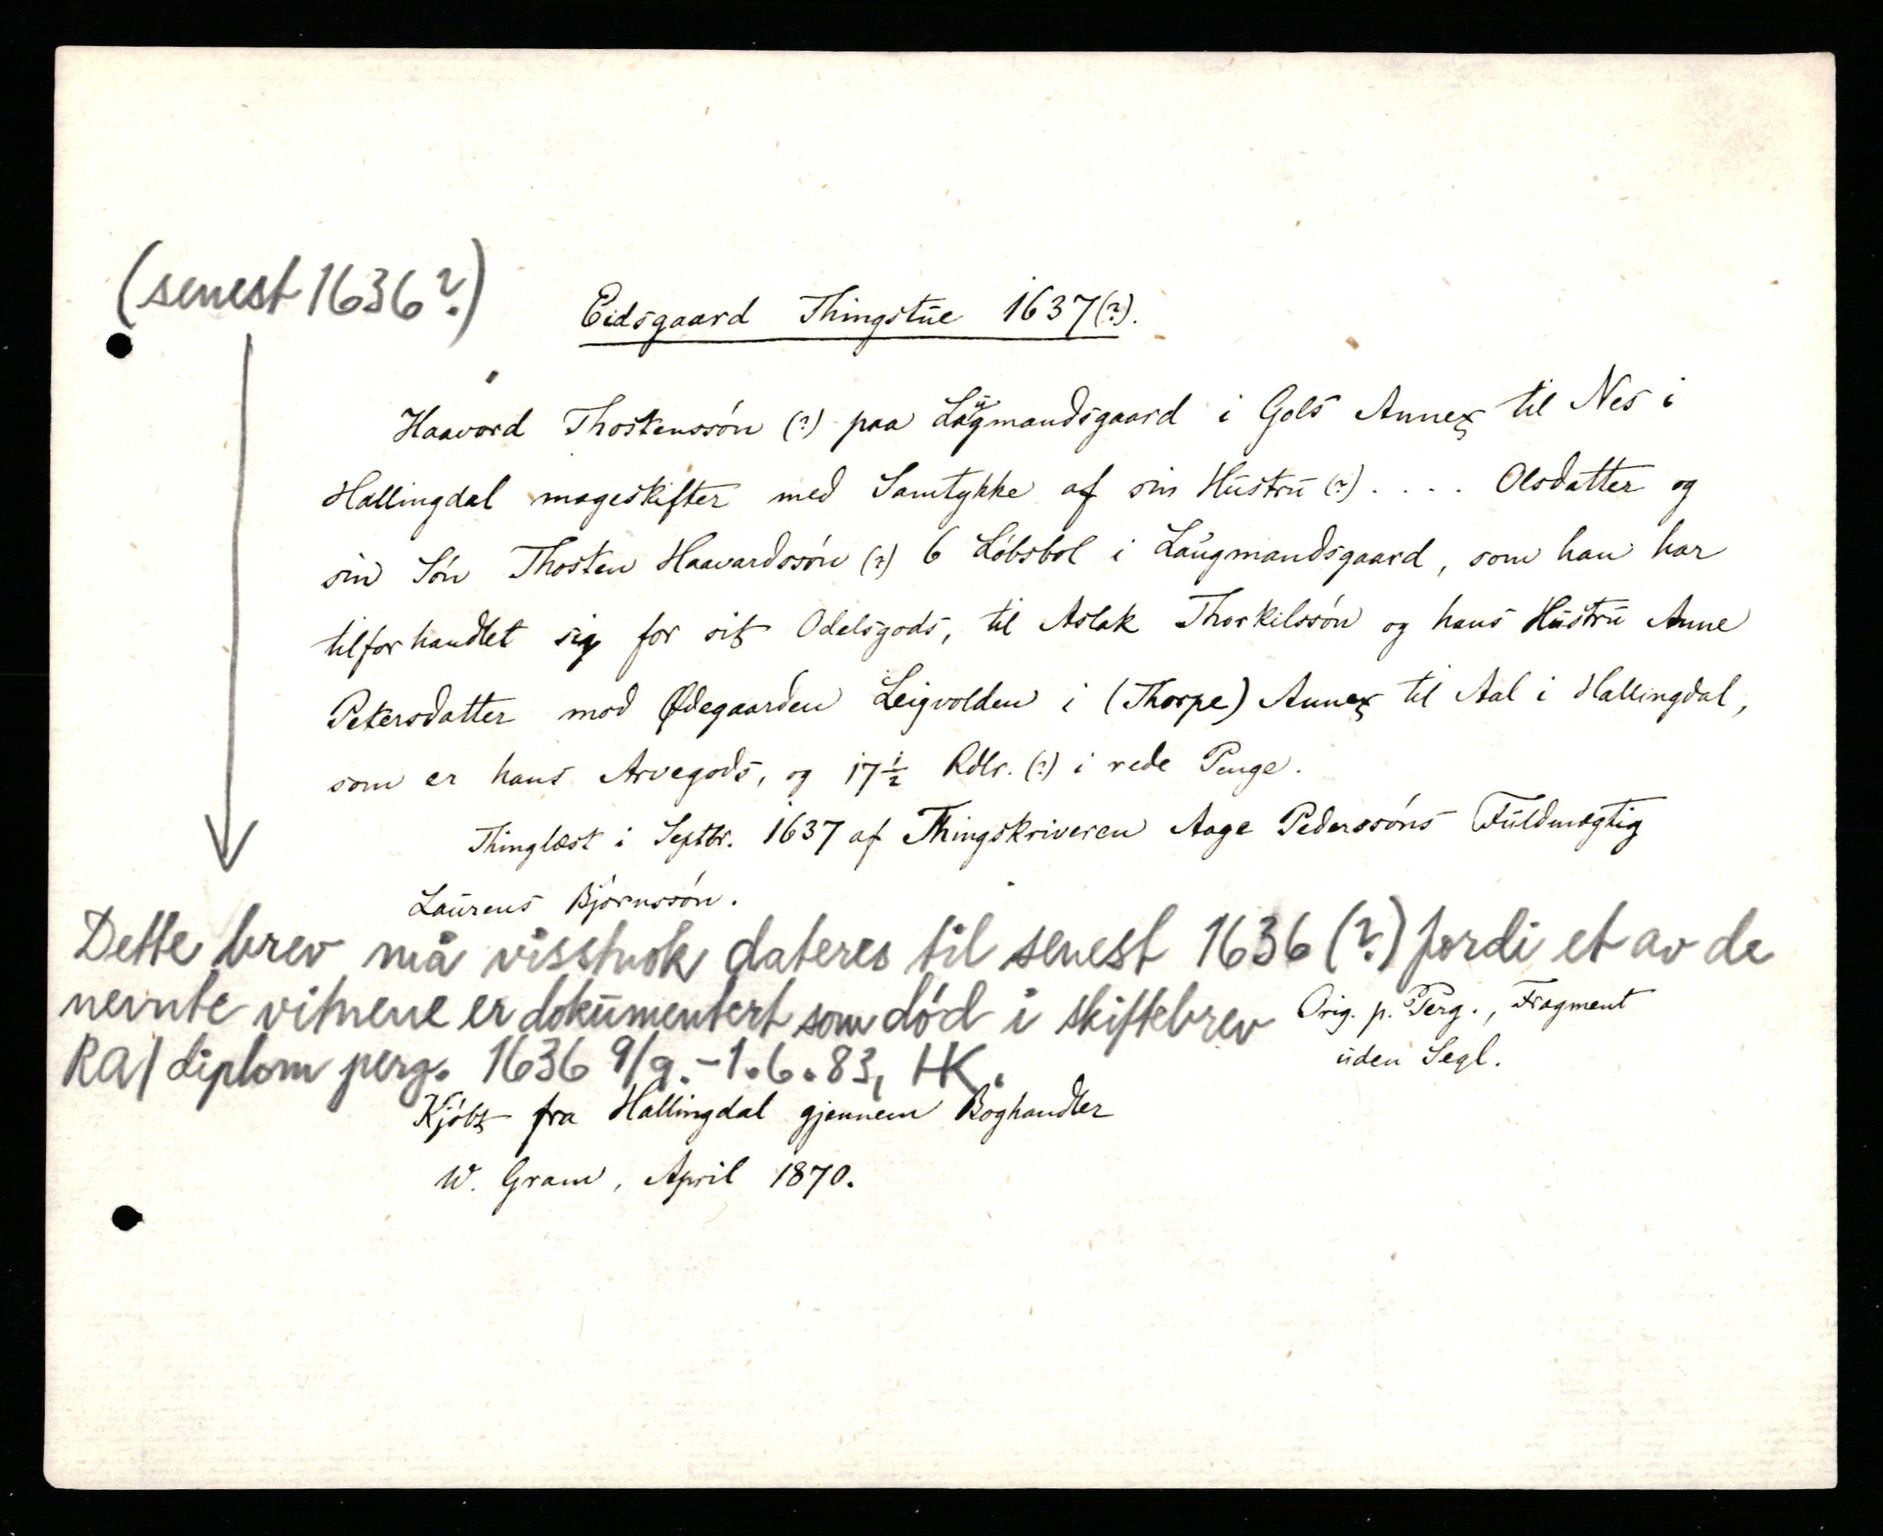 (senest 1636?)
Eidsgaard Thingstue 1637(?).
Haavord Thostenssön (?) paa Laugmandsgaard i Gols Annex til Nes i
Hallingdal mageskifter med Samtykke af sin Hustru (?) . . . . Olsdatter og
sin Sön Thosten Haavardssön (?) 6 Löbsbol i Laugmandsgaard, som han har
tilforhandlet sig for sit Odelsgods, til Aslak Thorkilssön og hans Hustru Anne
Petersdatter mod Ødegaarden Leigvolden i (Thorpe) Annex til Aal i Hallingdal,
som er hans Arvegods, og 17 1/2 Rdlr. (?) i rede Penge.
Thinglæst i Septbr. 1637 af Thingskriveren Aage Pederssöns Fuldmægtig
Laurens Björnssön.
Dette brev må visstnok dateres til senest 1636 (?) fordi et av de
nevnte vitnene er dokumentert som död i skiftebrev
RA/diplom perg. 1636 9/9. – 1.6.83, HK.
Orig. p. Perg., Fragment
uden Segl.
Kjöbt fra Hallingdal gjennem Boghandler
W. Gram, April 1870.